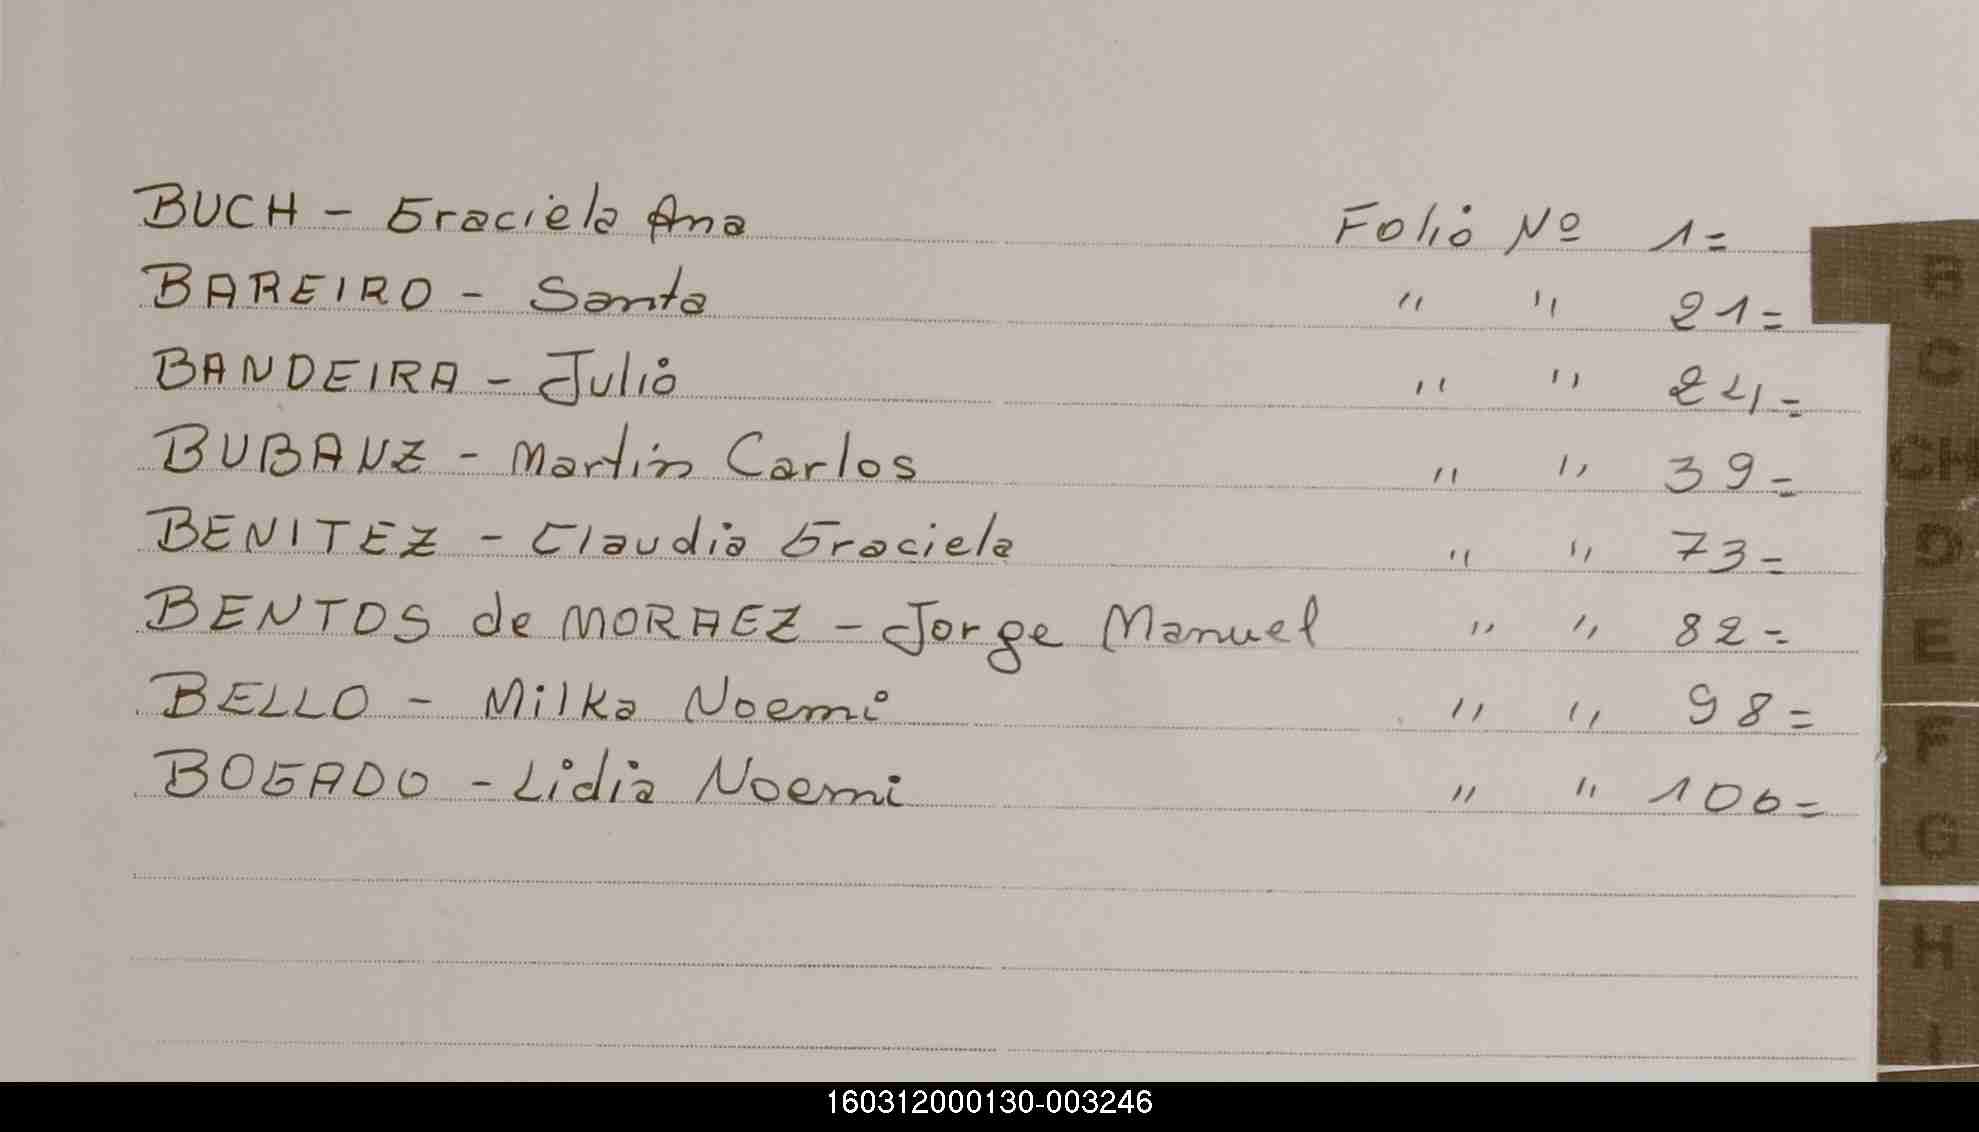 BUCH - Graciela Ana Folio Nº 1=
BAREIRO - Santa " " 21=
BANDEIRA - Julio " " 24=
BUBANZ - Martin Carlos " " 39=
BENITEZ - Claudia Graciela " " 73=
BENTOS de MORAEZ - Jorge Manuel " " 82=
BELLO - Milka Noemi " " 98=
BOGADO - Lidia Noemi " " 106=
B
C
CH
D
E
F
G
H
I
160312000130-003246